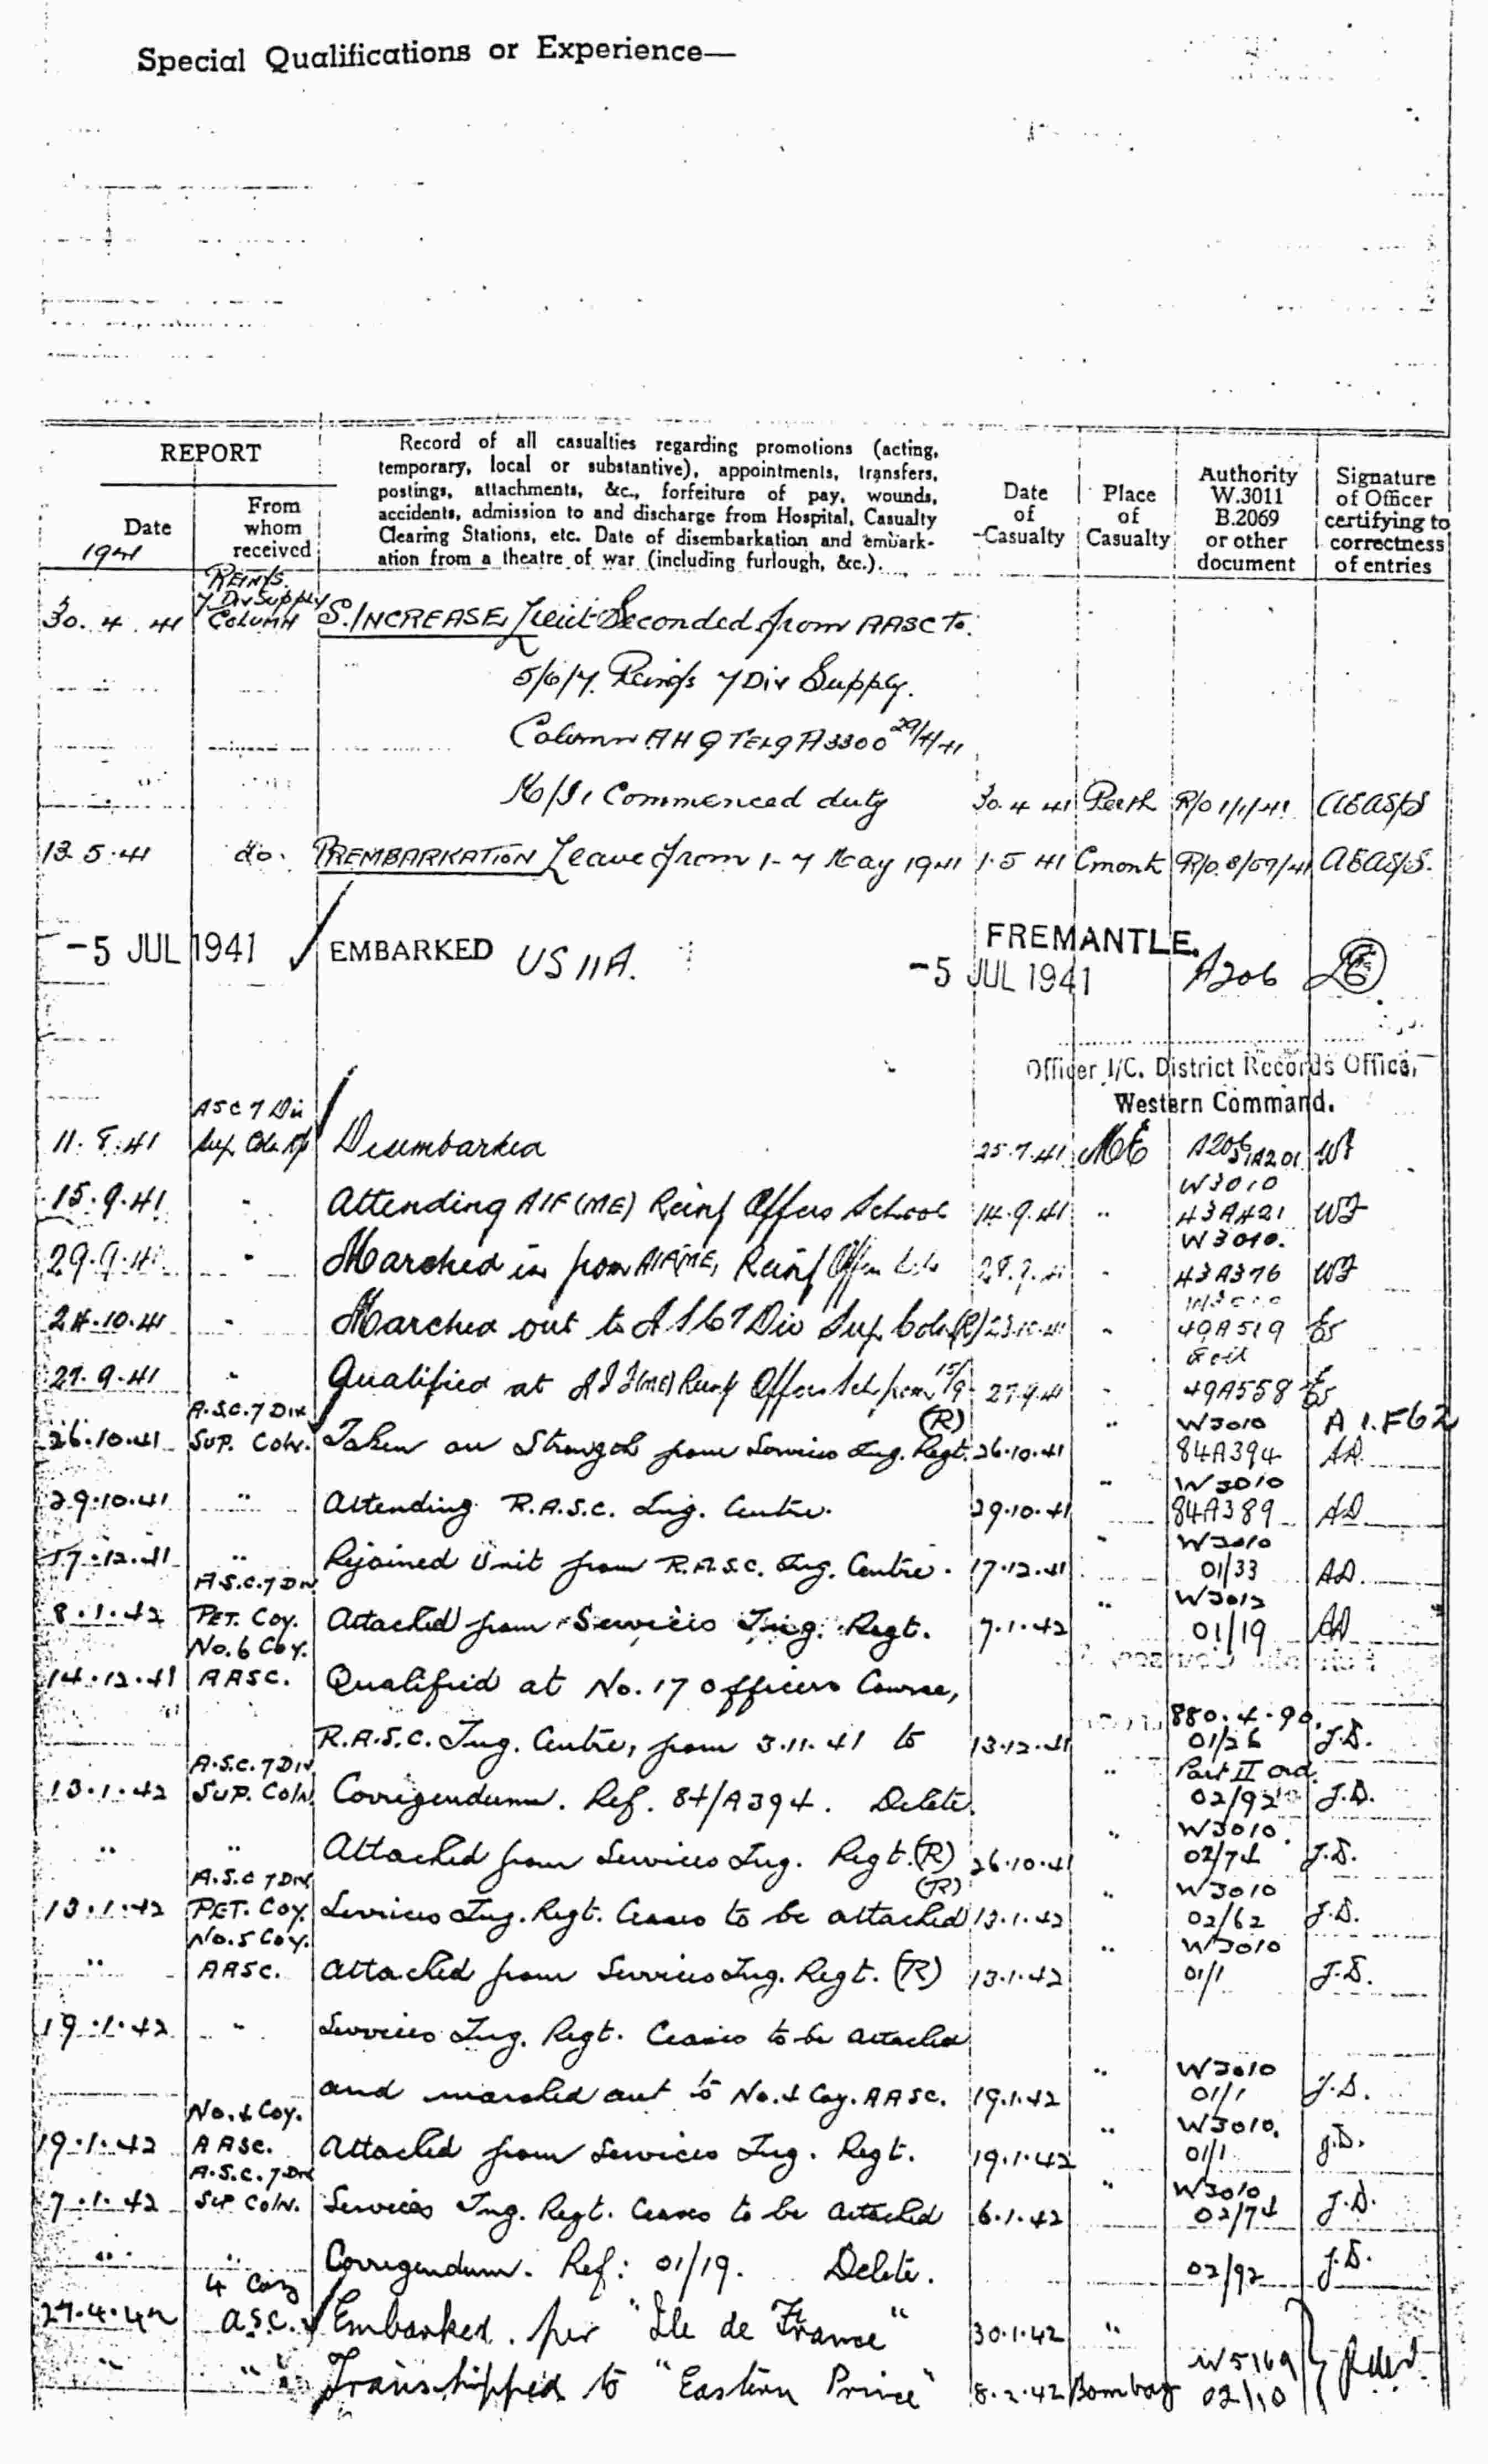 Special Qualifications or Experience—
REPORT
Date
1941
From
whom
received
Record of all casualties regarding promotions (acting,
temporary, local or substantive), appointments, transfers,
postings, attachments, &c., forfeiture of pay, wounds,
accidents, admission to and discharge from Hospital, Casualty
Clearing Stations, etc. Date of disembarkation and embark-
ation from a theatre of war (including furlough, &c.).
Date
of
Casualty
Place
of
Casualty
Authority
W.3011
B.2069
or other
document
Signature
of Officer
certifying to
correctness
of entries
Reinfs.
7 Div Supply
30. 4. 41 Column S. INCREASE Lieut Seconded from AASC To.
5/6/7. Reinfs 7 Div Supply.
Column AHQ Telg A3300 29/4/41
Commenced duty 30. 4 41 Perth R/O 1/1/41
13 5. 41 do. PREMBARKATION Leave from 1-7 May 1941 1. 5 41 R/O. 8/59/41
-5 JUL 1941 EMBARKED US 11A. FREMANTLE.
-5 JUL 1941 A206
Officer I/C. District Records Office,
Western Command.
ASC 7 Div
11. 8. 41 Disembarked 25. 7. 41 ME A206
W3010
15. 9. 41 " Attending AIF (ME) Reinf Offers School 14. 9. 41 " 43A421
W3010.
29. 9. 41 " Marched in from AIF(ME) Reinf 43A376
24. 10. 41 " Marched out to ASC 7 Div Sup Coln (R) 23. 10. 41 " 49A519
27. 9. 41 " Qualified at AIF (ME) Reinf Offers Sch from 15/9 - 27. 9. 41 " 49A558
A.S.C. 7 Div (R) " W3010
26. 10. 41 Sup. Coln. Taken on Strength from Services Trg. Regt. 26. 10. 41 84A394 AD
" W3010
29. 10. 41 " Attending R.A.S.C. Trg. Centre. 29. 10. 41 84A389 AD
" W3010
17. 12. 41 " Rejoined Unit from R.A.S.C. Trg. Centre. 17. 12. 41 01/33 AD.
A.S.C. 7 Div " W3012
8. 1. 42 PET. Coy. Attached from Services Trg. Regt. 7. 1. 42 01/19 AD
No. 6 Coy.
14. 12. 41 AASC. Qualified at No. 17 Officers Course,
880. 4. 90.
R.A.S.C. Trg. Centre, from 3. 11. 41 to 13. 12. 41 01/26 J.D.
A.S.C. 7 Div " Part II Ord.
13. 1. 42 Sup. Coln. Corrigendum. Ref. 84/A394. Delete. 02/92 J.D.
" W3010.
" " Attached from Services Trg. Regt. (R) 26. 10. 41 02/74 J.D.
A.S.C 7 Div (R) " W3010
13. 1. 42 PET. Coy. Services Trg. Regt. Ceases to be attached 13. 1. 42 02/62 J.D.
No. 5 Coy. " W3010
" AASC. Attached from Services Trg. Regt. (R) 13. 1. 42 01/1 J.D.
19. 1. 42 " Services Trg. Regt. Ceases to be attached
" W3010
and marched out to No. 4 Coy. AASC. 19. 1. 42 01/1 J.D.
No. 4 Coy. " W3010.
19. 1. 42 AASC. Attached from Services Trg. Regt. 19. 1. 42 01/1 J.D.
A.S.C. 7 Div " W3010
7. 1. 42 Sup Coln. Services Trg. Regt. Ceases to be attached 6. 1. 42 02/74 J.D.
" " Corrigendum. Ref: 01/19. Delete. 02/92 J.D.
4 Coy
27. 4. 42 A.S.C. Embarked. per "Ile de France" 30. 1. 42 "
W5169
" " Transhipped to "Eastern Prince" 8. 2. 42 Bombay 02/10